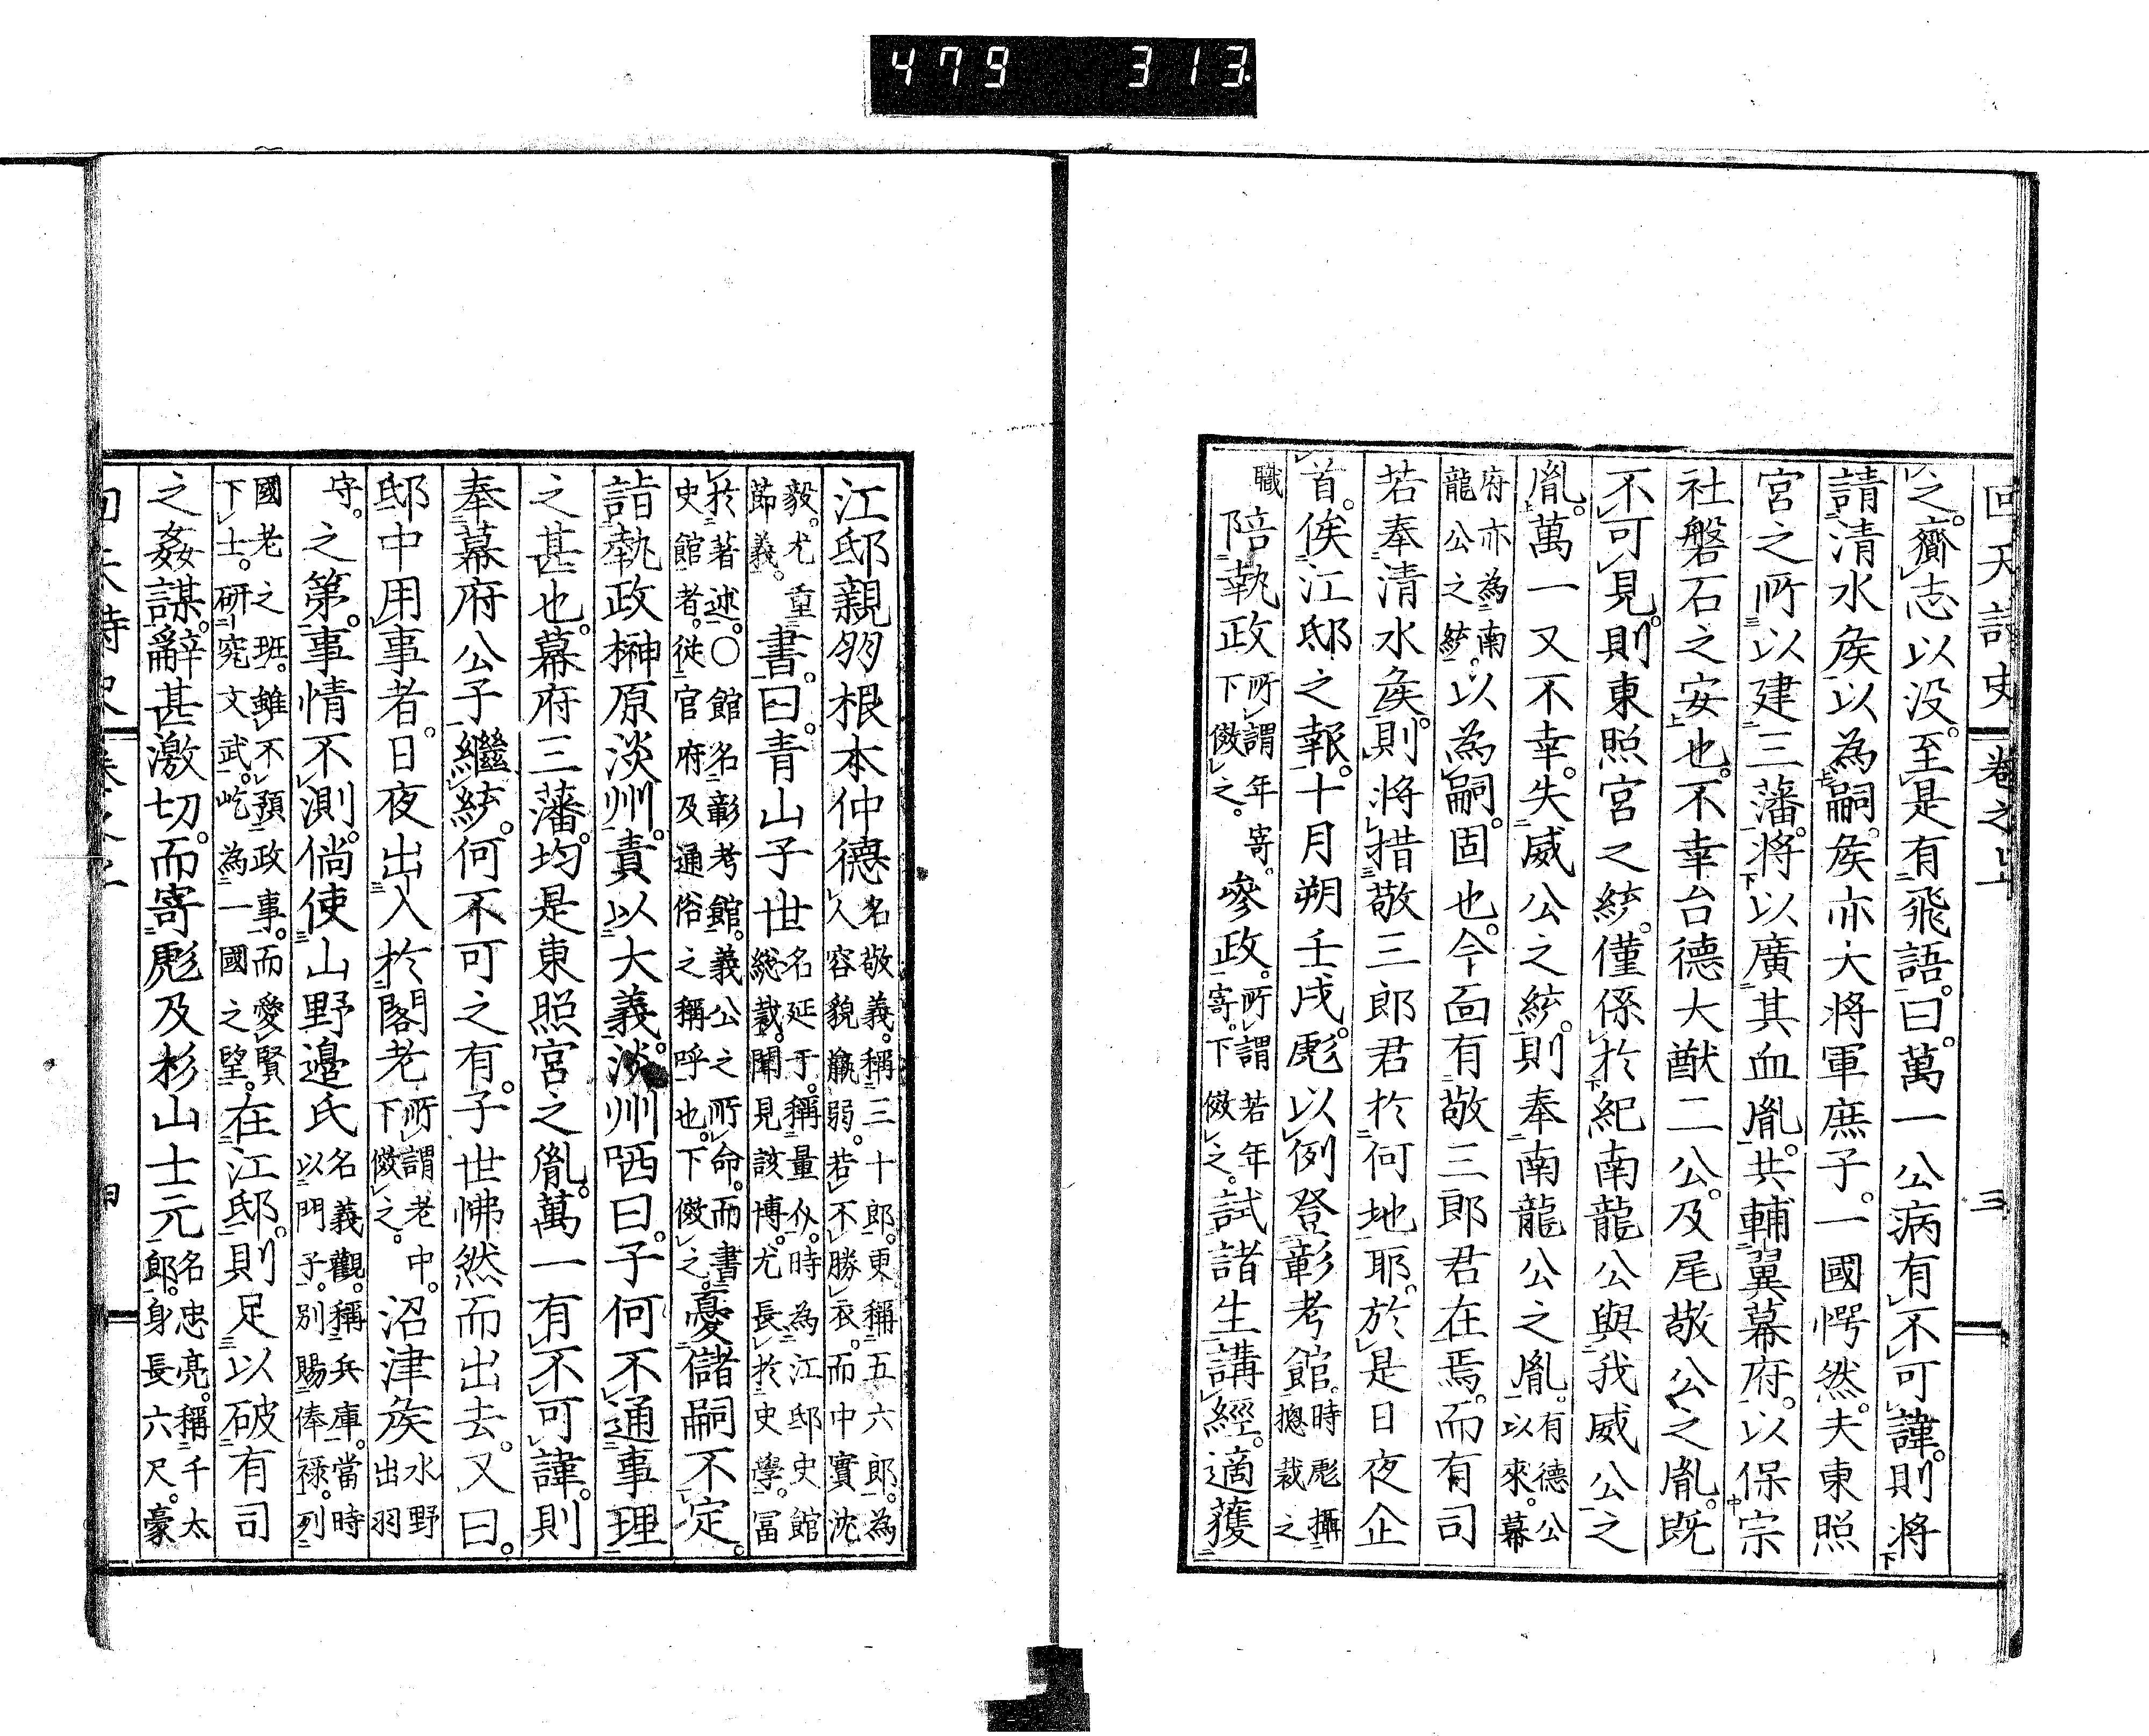 479 313
回天詩史 卷之上 三
之。齎志以没。至是有飛語。曰。萬一公病有不可諱。則將
請清水矦以為嗣。矦亦大將軍庶子。一國愕然。夫東照
宮之所以建三藩。將以廣其血胤。共輔翼幕府。以保宗
社磐石之安也。不幸台德大猷二公。及尾敬公之胤。既
不可見。則東照宮之統。僅係於紀南龍公與我威公之
胤。萬一又不幸。失威公之統。則奉南龍公之胤。有德公以來。幕
府亦為南龍公之統。以為嗣。固也。今面有敬三郎君在焉。而有司
若奉清水矦。則將措敬三郎君於何地耶。於是日夜企
首。俟江邸之報。十月朔壬戌。彪以例登彰考館。時彪攝摠裁之
職陪執政所謂年寄。下傚之。參政。所謂若年寄。下傚之。試諸生講經。適獲
江邸親友根本仲德名敬義。稱三十郎。東稱五六郎。為人容貌羸弱。若不勝衣。而中實沈
毅。尤重節義。書。曰。青山子世名延于。稱量介。時為江邸史館総裁。聞見該博。尤長於史學。冨
於著述。○館名彰考館。義公之所命。而書史館者。從官府及通俗之稱呼也。下傚之。憂儲嗣不定。
詣執政榊原淡州。責以大義。淡州哂曰。子何不通事理
之甚也。幕府三藩。均是東照宮之胤。萬一有不可諱。則
奉幕府公子繼統。何不可之有。子世怫然而出去。又曰。
邸中用事者。日夜出入於閣老所謂老中。下傚之。沼津矦水野出羽
守。之第。事情不測。倘使山野邉氏名義觀。稱兵庫。當時以門子。別賜俸禄。列
國老之班。雖不預政事。而愛賢下士。研究文武。屹為一國之望。在江邸。則足以破有司
之姦謀。辭甚激切。而寄彪及杉山士元名忠亮。稱千太郎。身長六尺。豪